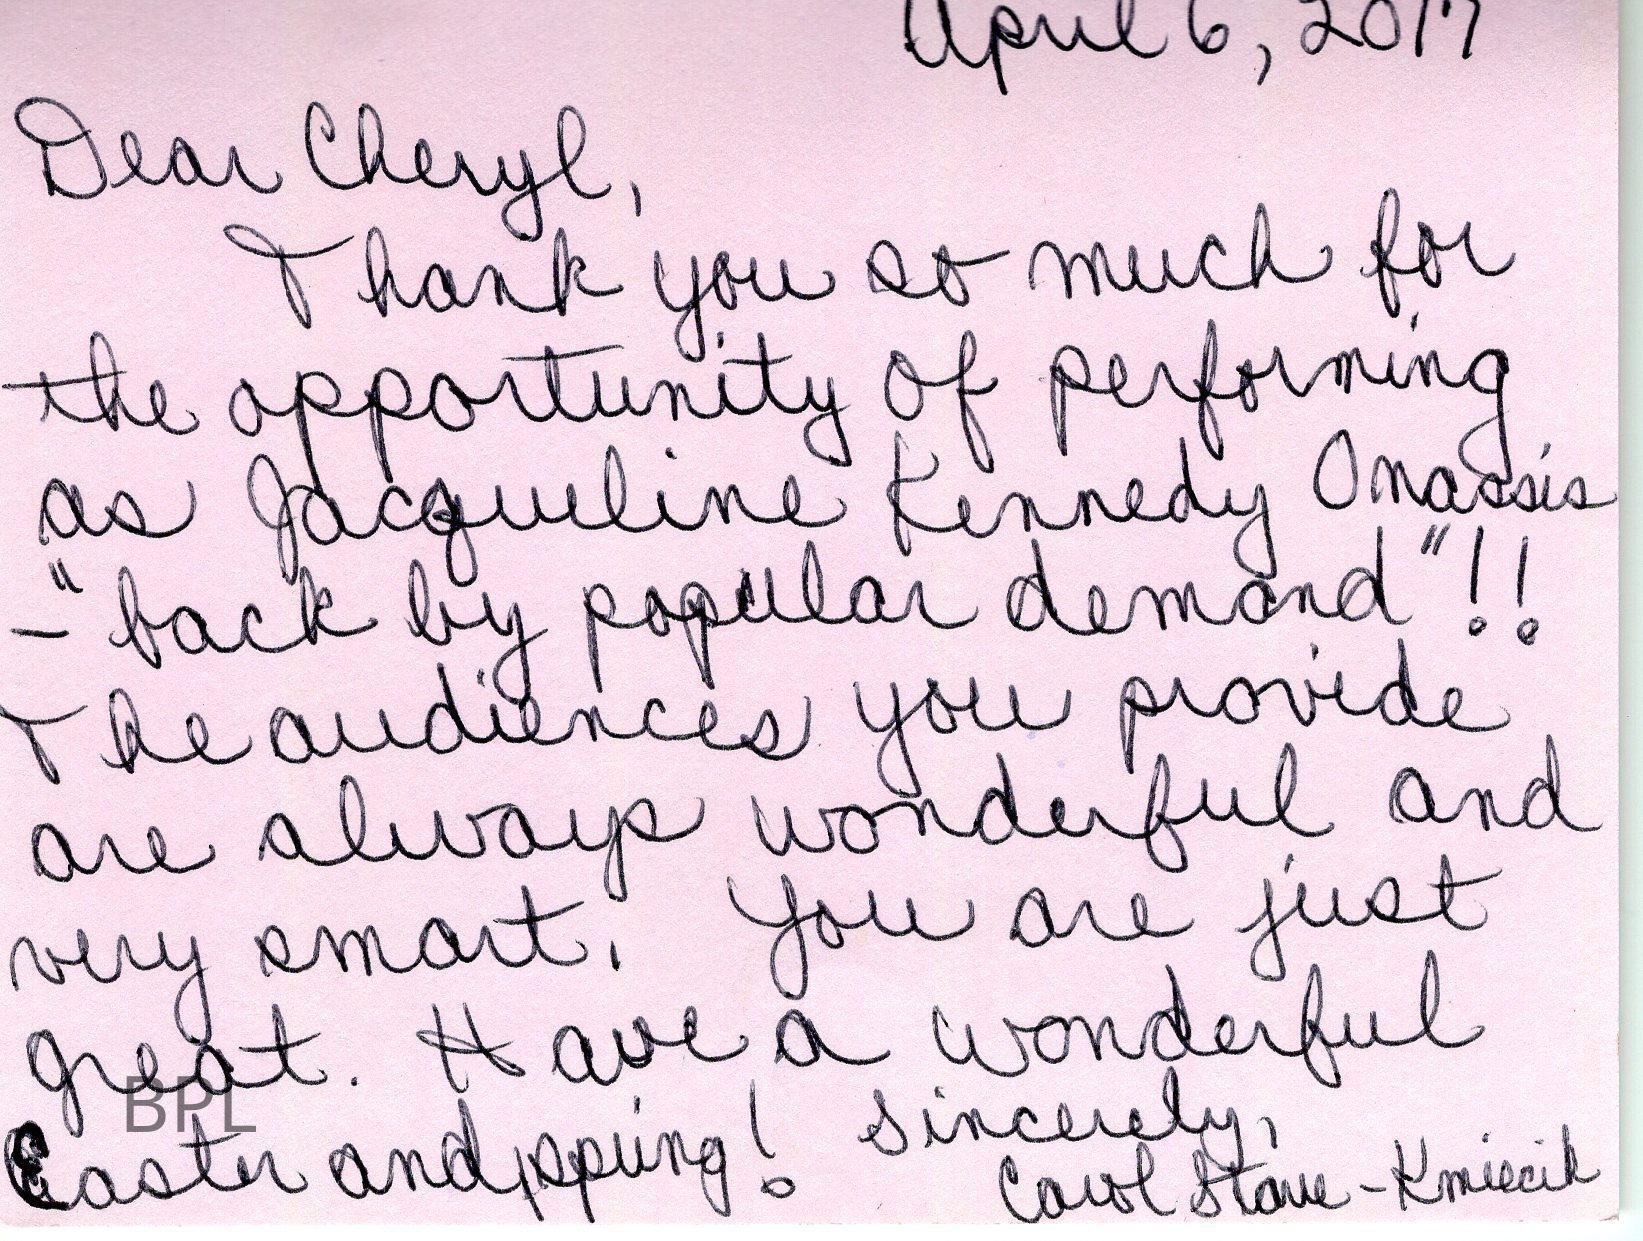 April 6, 2017
Dear Cheryl,
Thank you so much for
the opportunity of performing
as Jacqueline Kennedy Onassis
- "back by popular demand"!!
The audiences you provide
are always wonderful and
very smart. You are just
great. Have a wonderful
BPL
Easter and spring! Sincerely,
Carol Starre-Kmiecik